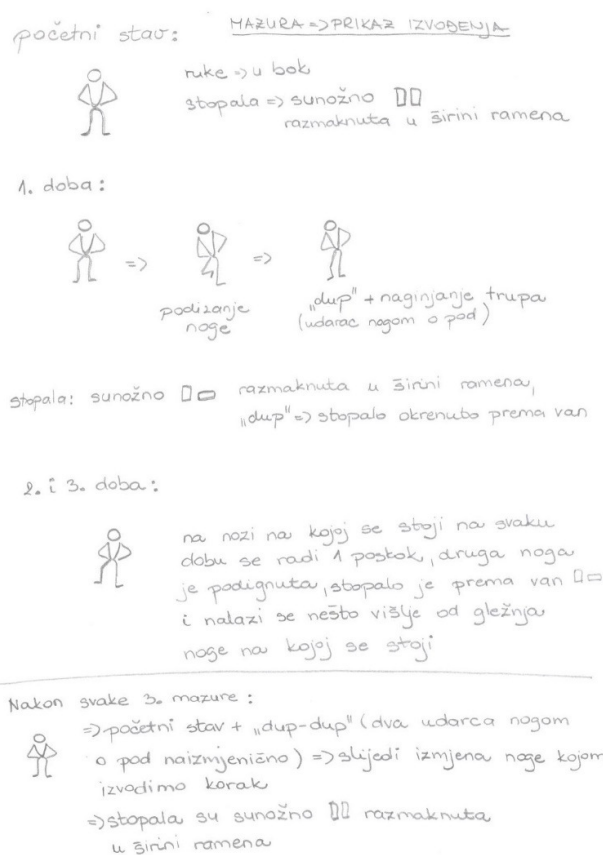 MAZURA => PRIKAZ IZVOĐENJA
početni stav:
ruke => u bok
stopala => sunožno
razmaknuta u širini ramena
1. doba:
=> =>
podizanje
noge
„dup" + naginjanje trupa
(udarac nogom o pod)
stopala: sunožno razmaknuta u širini ramena,
„dup" => stopalo okrenuto prema van
2. i 3. doba:
na nozi na kojoj se stoji na svaku
dobu se radi 1 poskok, druga noga
je podignuta, stopalo je prema van
i nalazi se nešto višlje od gležnja
noge na kojoj se stoji
Nakon svake 3. mazure:
=> početni stav + „dup-dup" (dva udarca nogom
o pod naizmjenično) => slijedi izmjena noge kojom
izvodimo korak
=> stopala su sunožno razmaknuta
u širini ramena